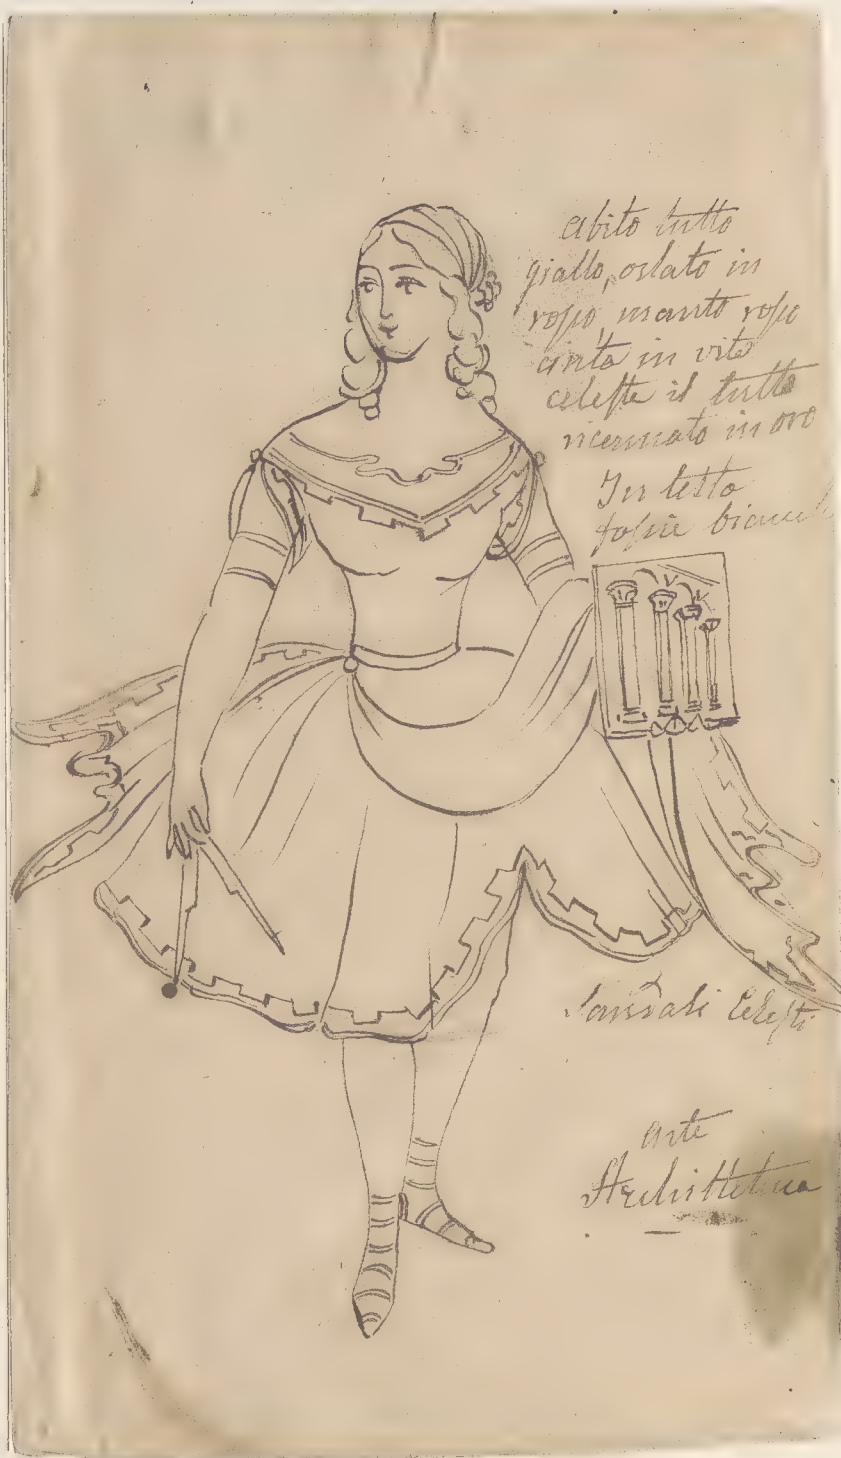 abito tutto
giallo, orlato in
rosso, manto rosso
cinta in vita
celeste il tutto
ricamato in oro
In testa
fascie bianche
Sandali Celesti
arte
Architettura